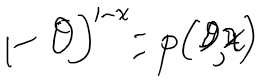 1-θ)^{1-x} = p(θ,x)